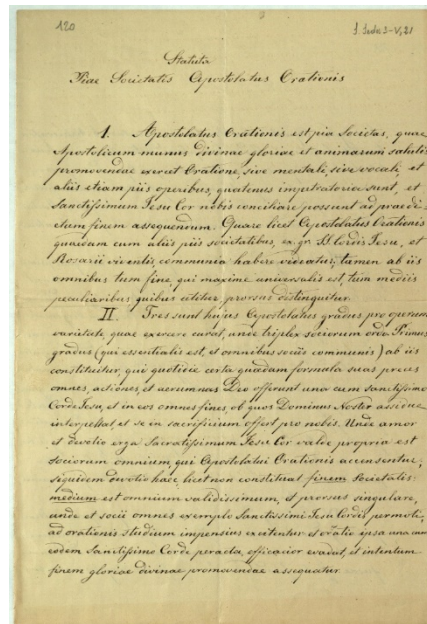 120
S. Sede 3-V, 21
Statuta
Piae Societatis Apostolatus Orationis
I. Apostolatus Orationis est pia Societas, quae
Apostolicum munus divinae gloriae et animarum salutis
promovendae exercet Oratione, sive mentali sive vocali, et
aliis etiam piis operibus, quatenus impetratoria sunt, et
Sanctissimum Jesu Cor nobis conciliare possent ad praedi-
ctum finem assequendum. Quare licet Apostolatus Orationis
quaedam cum aliis piis societatibus, ex. gr. SS. Cordis Jesu, et
Rosarii viventis communia habere videatur; tamen ab iis
omnibus tum fine, qui maxime universalis est, tum mediis
peculiaribus quibus utitur, prorsus distinguitur.
II. Tres sunt hujus Apostolatus gradus pro operum
varietate, quae exercere curat, unde triplex sociorum ordo. Primus
gradus (qui essentialis est, et omnibus sociis communis) ab iis
constituitur, qui quotidie certa quadam formula suas preces
omnes, actiones, et aerumnas Deo offerunt una cum sanctissimo
Corde Jesu, et in eos omnes fines ob quos Dominus Noster assidue
interpellat et se in sacrificium offert pro nobis. Unde amor
et devotio erga Sacratissimum Jesu Cor valde propria est
sociorum omnium, qui Apostolatui Orationis accensentur,
siquidem devotio haec licet non constituat finem Societatis,
medium est omnium validissimum, et prorsus singulare,
unde et socii omnes exemplo Sanctissimi Jesu Cordis permoti,
ad orationis studium impensius excitentur et oratio ipsa una cum
eodem Sanctissimo Corde peracta, efficacior evadat, et intentum
finem gloriae divinae promovendae assequatur.